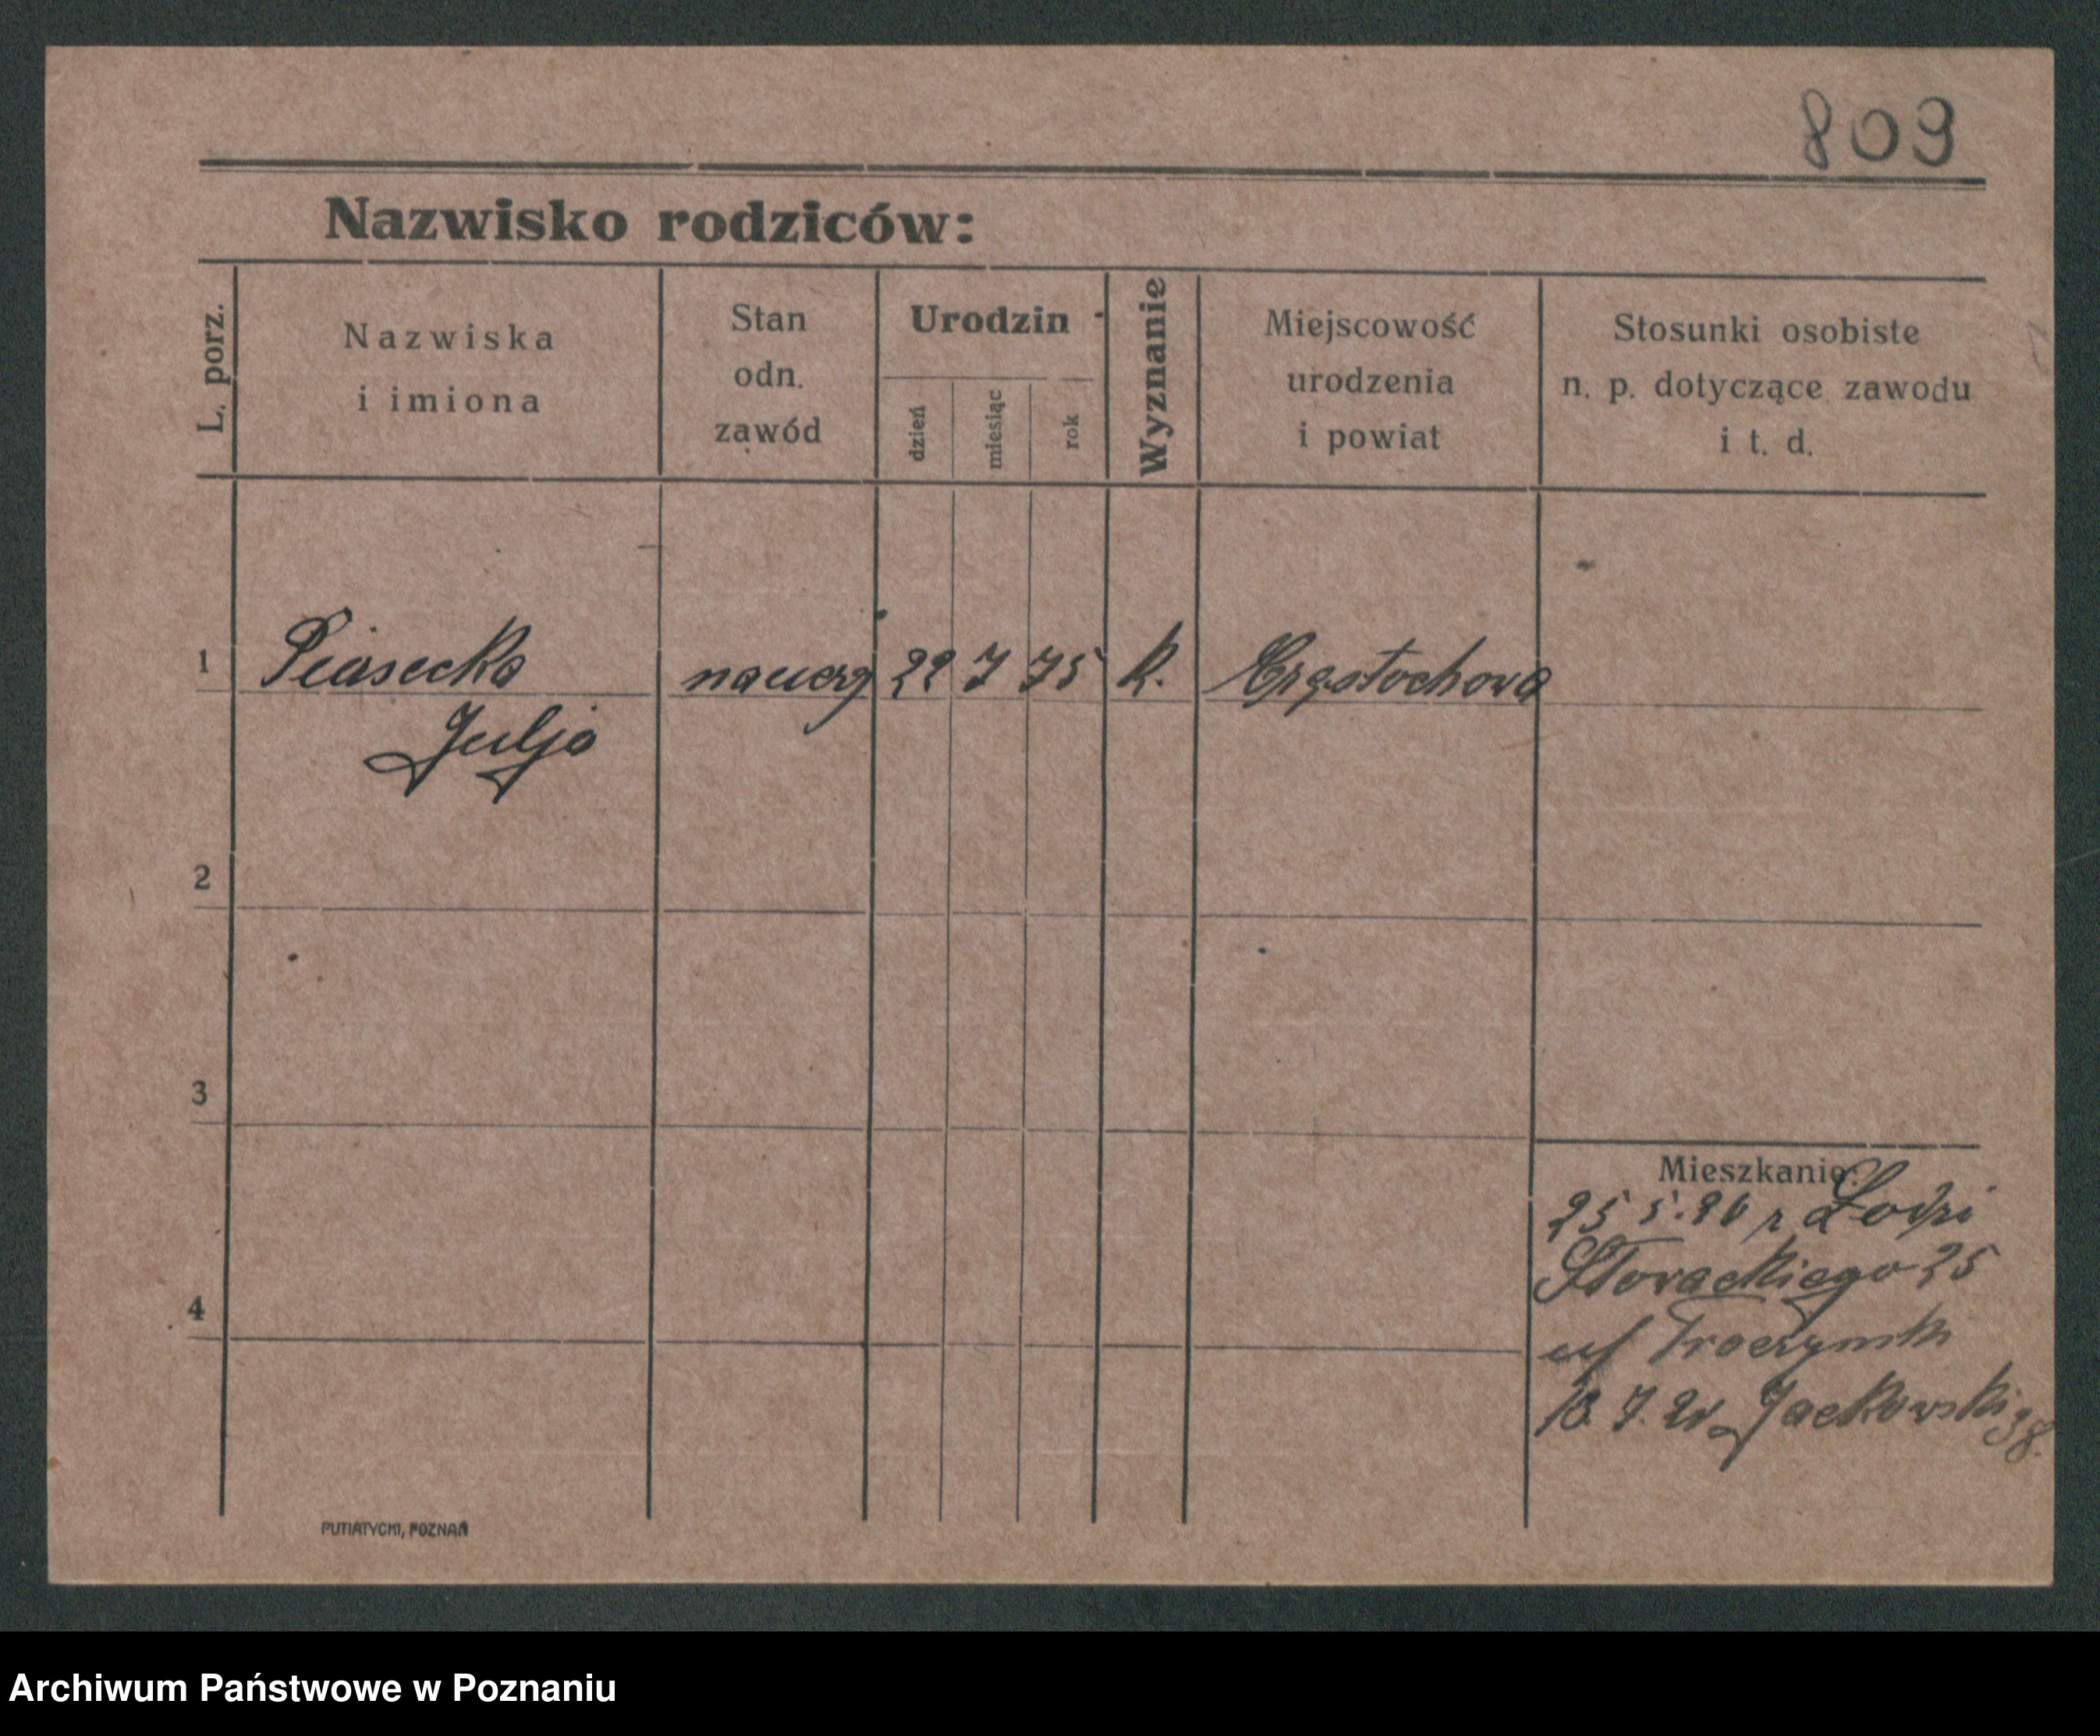 809
Nazwisko rodziców:
L. porz.
Nazwiska
i imiona
Stan
odn.
zawód
Urodzin
dzień
miesiąc
rok
Wyznanie
Miejscowość
urodzenia
i powiat
Stosunki osobiste
n. p. dotyczące zawodu
i t. d.
1
Piasecka
naucz
22 7 75
K.
Częstochowa
Julja
2
3
4
Mieszkanie:
25 5. 26 z Łodzi
Słowackiego 25
18. 7. Jackowski 38.
PUTIATYCKI, POZNAŃ
Archiwum Państwowe w Poznaniu